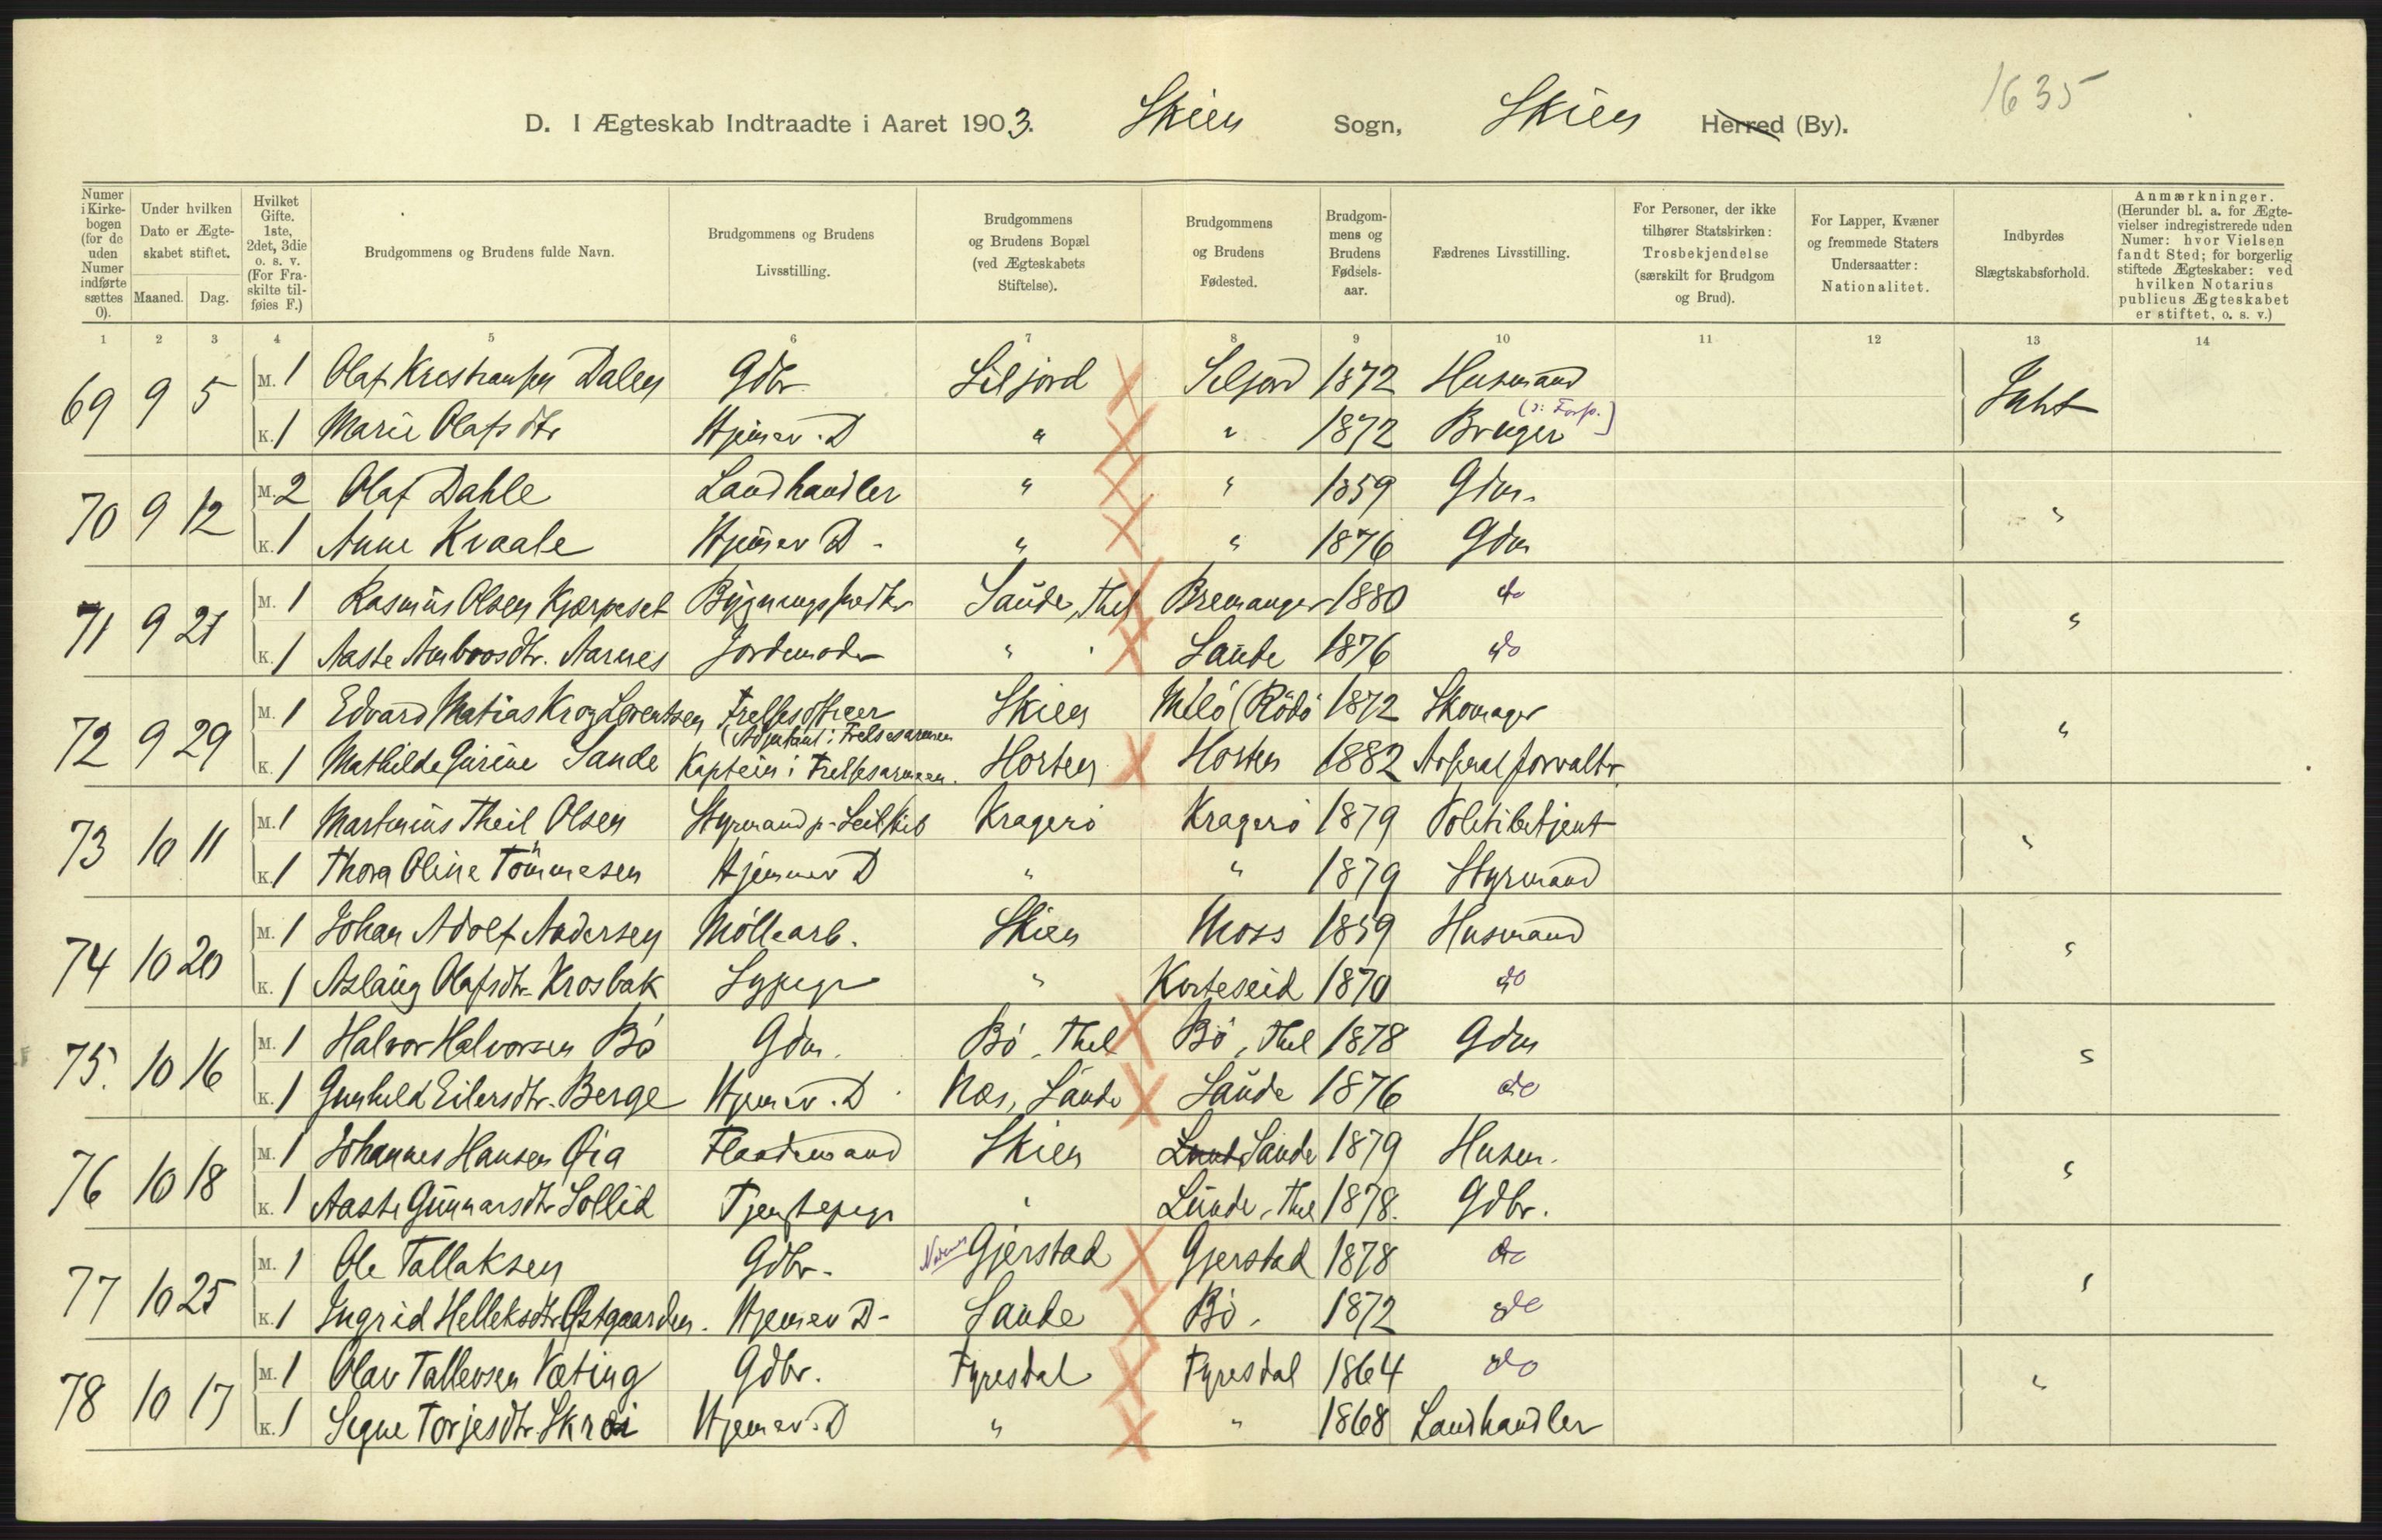 1635
D. I Ægteskab Indtraadte i Aaret 1903. Skien Sogn, Skien Herred (By).
Numer i Kirkebogen (for de uden Numer indførte sættes 0).
Under hvilken Dato er Ægteskabet stiftet.
Maaned. Dag.
Hvilket Gifte. 1ste, 2det, 3die o. s. v. (For Fraskilte tilføies F.)
Brudgommens og Brudens fulde Navn.
Brudgommens og Brudens Livsstilling.
Brudgommens og Brudens Bopæl (ved Ægteskabets Stiftelse).
Brudgommens og Brudens Fødested.
Brudgommens og Brudens Fødselsaar.
Fædrenes Livsstilling.
For Personer, der ikke tilhører Statskirken: Trosbekjendelse (særskilt for Brudgom og Brud).
For Lapper, Kvæner og fremmede Staters Undersaatter: Nationalitet.
Indbyrdes Slægtskabsforhold.
Anmærkninger. (Herunder bl. a. for Ægtevielser indregistrerede uden Numer: hvor Vielsen fandt Sted; for borgerlig stiftede Ægteskaber: ved hvilken Notarius publicus Ægteskabet er stiftet, o. s. v.)
1 2 3 4 5 6 7 8 9 10 11 12 13 14
69 9 5 M. 1 Olaf Kristiansen Dalen Gdbr Siljord Seljord 1872 Husmand Intet
K. 1 Marie Olafsdtr Hjemev. D " " 1872 Bruger (ɔ: Forp.)
70 9 12 M. 2 Olaf Dahle Landhandler " " 1859 Gdm. "
K. 1 Anne Kvaale Hjemev D - " " 1876 Gdm
71 9 21 M. 1 Rasmus Olsen Kjærpeset Saude, Thel Bremanger 1880 do "
K. 1 Aaste Ambrosdtr. Aarnes Jordemoder " Saude 1876 do
72 9 29 M. 1 Edvard Matias Krog Lorentsen Frelsesofficer (Adjutant i Frelsesarmeen Skien Melö (Rödö 1872 Skomager "
K. 1 Mathilde Gurine Sande Kaptein i Frelsesarmeen. Horten Horten 1882 Arsenalforvaltr
73 10 11 M. 1 Martinius Theil Olsen Styrmand p. Seilskib Kragerö Kragerö 1879 Politibetjent "
K. 1 Thora Oline Tömmesen Hjemmev D " " 1879 Styrmand
74 10 20 M. 1 Johan Adolf Andersen Möllearb. Skien Moss 1859 Husmand "
K. 1 Aslaug Olafsdtr. Krosbak Sypige " Kviteseid 1870 do
75. 10 16 M. 1 Halvor Halvorsen Bö Gdm. Bö, Thel Bö, Thel 1878 Gdm "
K. 1 Gunhild Eilersdtr. Berge Hjemev. D Nes, Saude Saude 1876 do
76 10 18 M. 1 Johannes Hansen Øia Flaademand Skien Lunde Saude 1879 Husm. "
K. 1 Aaste Gunnarsdtr Sollid Tjenstepige " Lunde, Thel 1878. Gdbr.
77 10 25 M. 1 Ole Tallaksen Gdbr. Gjerstad Gjerstad 1878 do "
K. 1 Ingrid Helleksdtr Østgaarden. Hjemev D - Saude Bö. 1872 do
78 10 17 M. 1 Olav Tallevsen Væting Gdbr. Fyresdal Fyresdal 1864 do "
K. 1 Signe Torjesdtr. Skrei Hjemev. D " " 1868 Landhandler